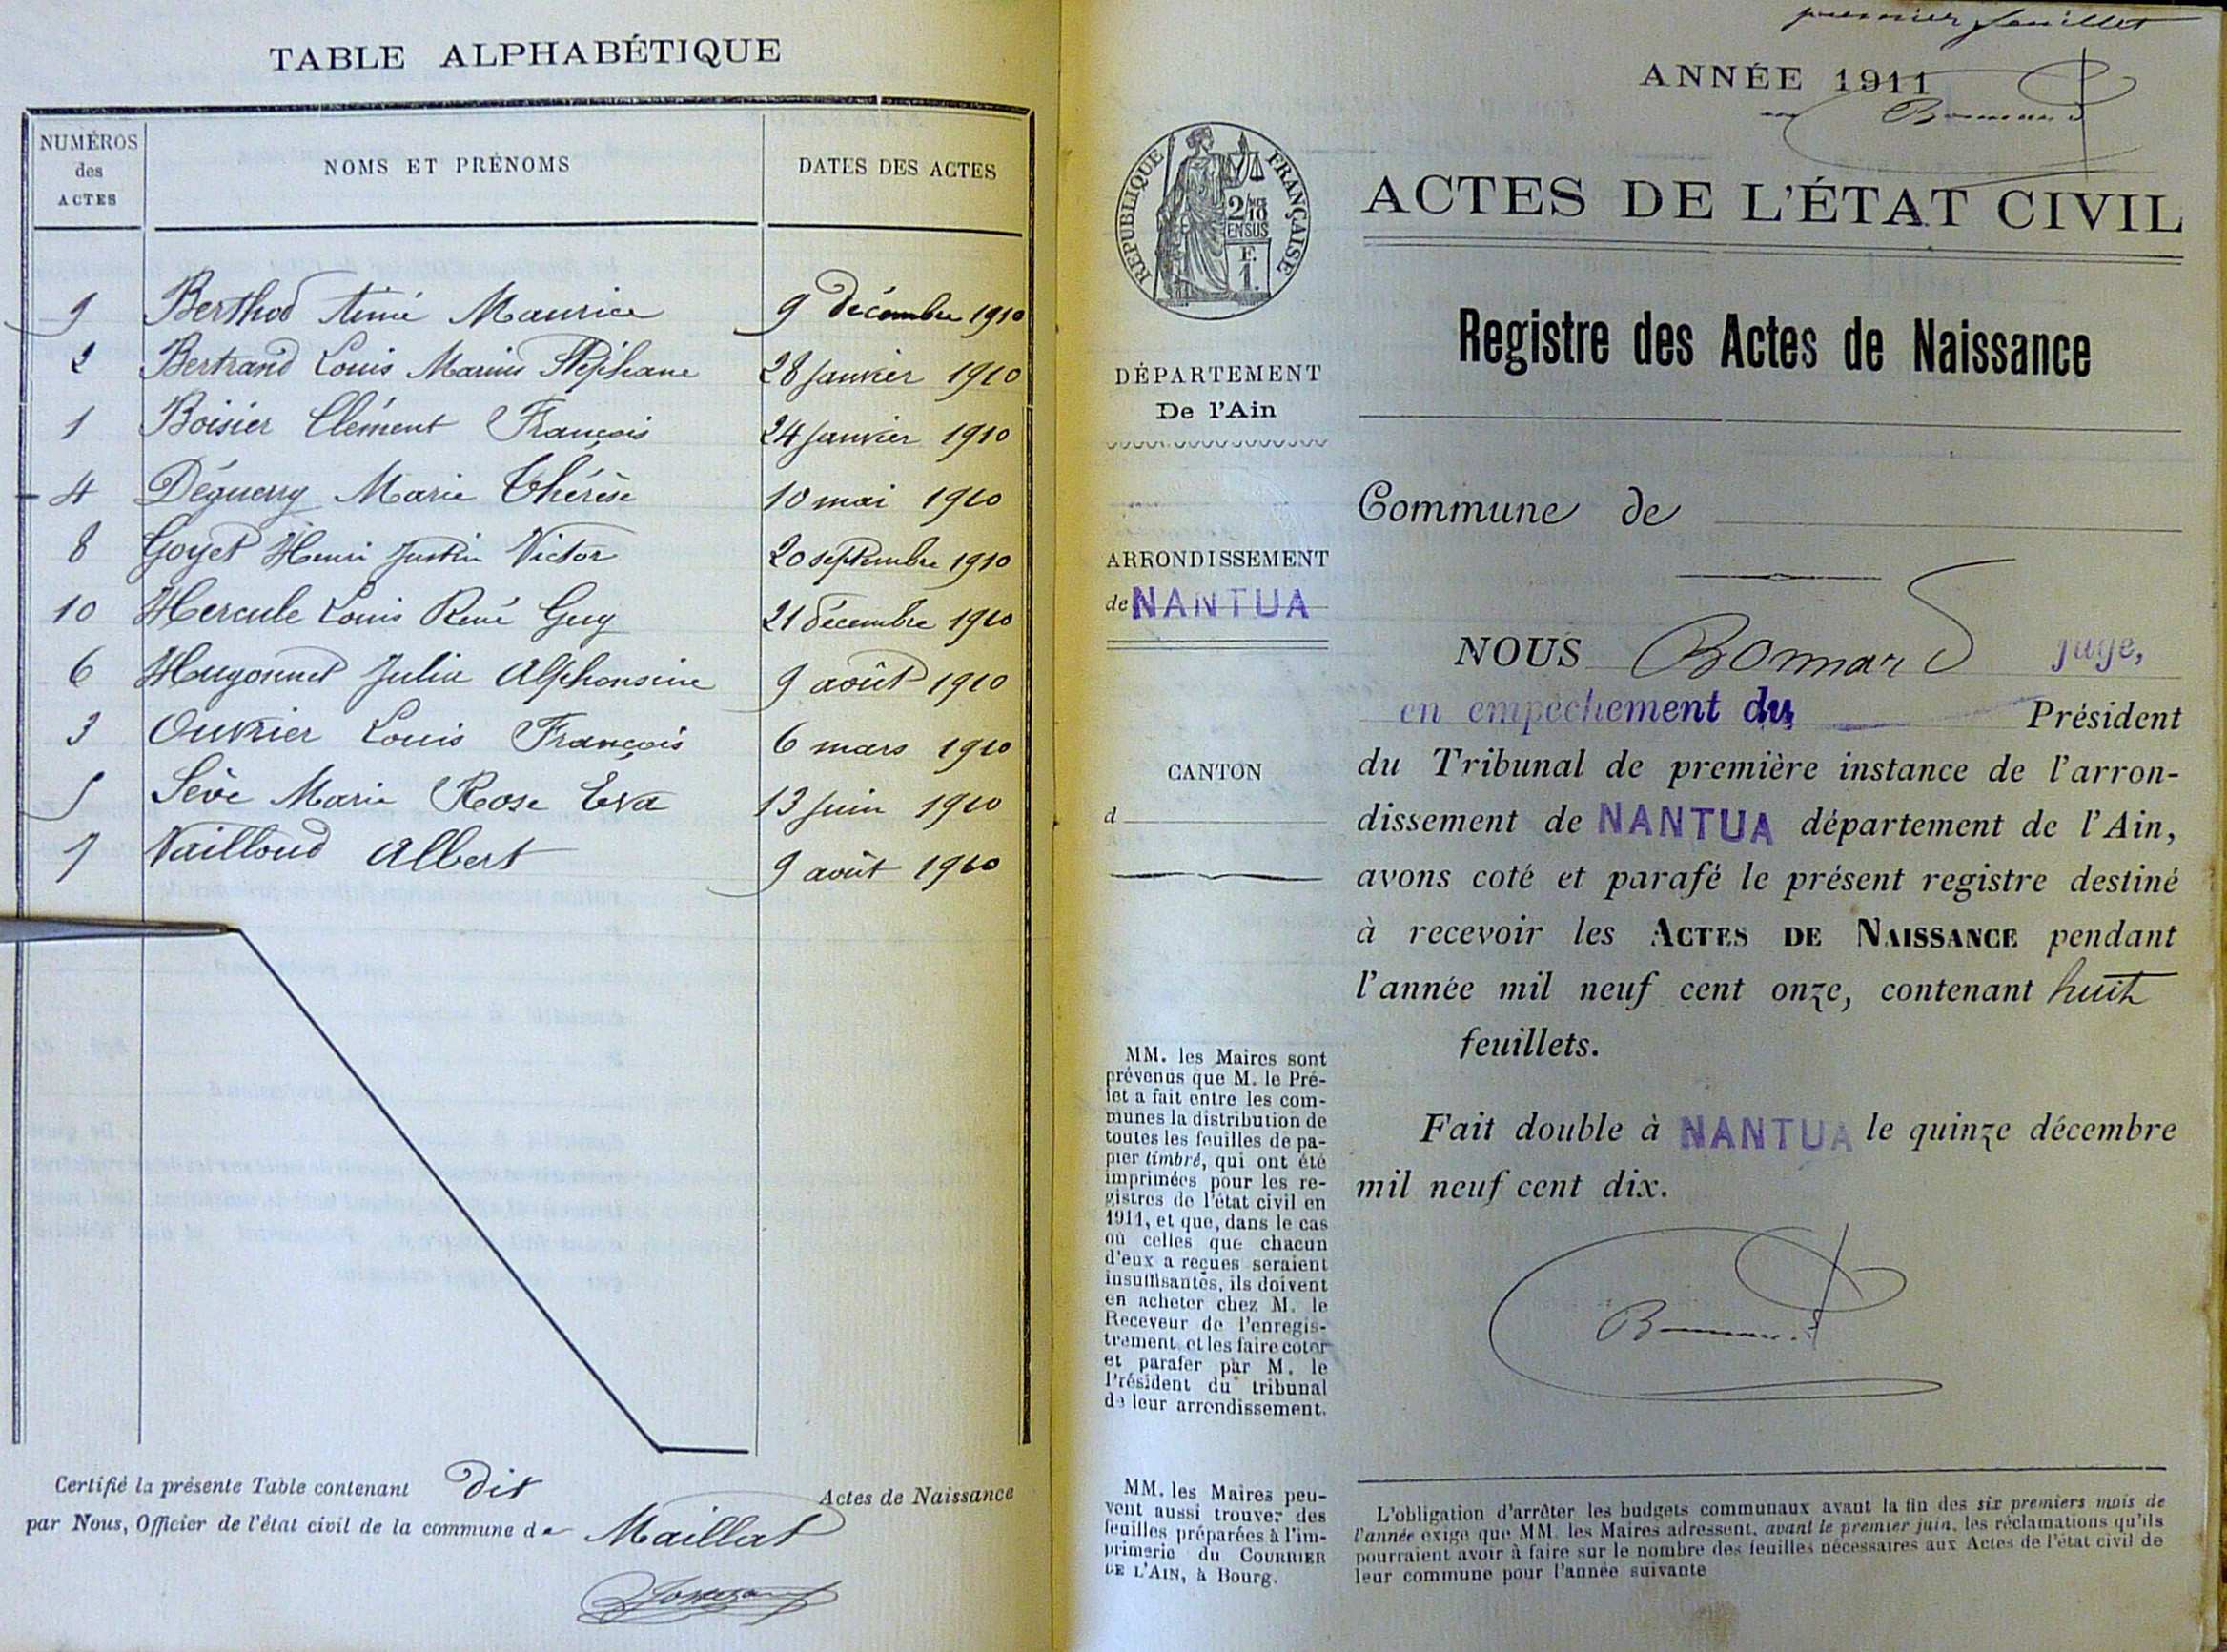 TABLE ALPHABÉTIQUE
NUMÉROS des ACTES
NOMS ET PRÉNOMS
DATES DES ACTES
9 Berthod Aimé Maurice 9 décembre 1910
2 Bertrand Louis Marius Stéphane 28 janvier 1910
1 Boisier Clément François 24 janvier 1910
4 Déguerry Marie Thérèse 10 mai 1910
8 Goyet Henri Justin Victor 20 septembre 1910
10 Hercule Louis René Guy 21 décembre 1910
6 Hugonnet Julia Alphonsine 9 août 1910
3 Ouvrier Louis François 6 mars 1910
5 Sève Marie Rose Eva 13 juin 1910
7 Vailloud Albert 9 août 1910
Certifié la présente Table contenant dix Actes de Naissance
par Nous, Officier de l'état civil de la commune de Maillat
premier feuillet
ANNÉE 1911
Bonnard
RÉPUBLIQUE FRANÇAISE
2/10
EN SUS
F.
1.
ACTES DE L'ÉTAT CIVIL
Registre des Actes de Naissance
DÉPARTEMENT
De l'Ain
ARRONDISSEMENT
de NANTUA
CANTON
d
MM. les Maires sont
prévenus que M. le Pré-
fet a fait entre les com-
munes la distribution de
toutes les feuilles de pa-
pier timbré, qui ont été
imprimées pour les re-
gistres de l'état civil en
1911, et que, dans le cas
où celles que chacun
d'eux a reçues seraient
insuffisantes, ils doivent
en acheter chez M. le
Receveur de l'enregis-
trement et les faire coter
et parafer par M. le
Président du tribunal
de leur arrondissement.
MM. les Maires peu-
vent aussi trouver des
feuilles préparées à l'im-
primerie du COURRIER
DE L'AIN, à Bourg.
Commune de
NOUS Bonnard juge,
en empêchement du Président
du Tribunal de première instance de l'arron-
dissement de NANTUA département de l'Ain,
avons coté et parafé le présent registre destiné
à recevoir les ACTES DE NAISSANCE pendant
l'année mil neuf cent onze, contenant huit
feuillets.
Fait double à NANTUA le quinze décembre
mil neuf cent dix.
Bonnard
L'obligation d'arrêter les budgets communaux avant la fin des six premiers mois de
l'année exige que MM. les Maires adressent, avant le premier juin, les réclamations qu'ils
pourraient avoir à faire sur le nombre des feuilles nécessaires aux Actes de l'état civil de
leur commune pour l'année suivante